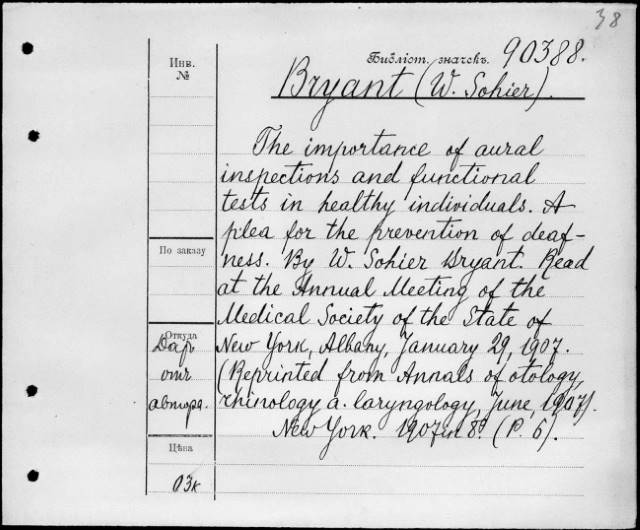 38
Инв.
№
Библіот. значекъ. 90388.
Bryant (W. Sohier).
The importance of aural
inspections and functional
tests in healthy individuals. A
plea for the prevention of deaf-
ness. By W. Sohier Bryant. Read
at the Annual Meeting of the
Medical Society of the State of
New York, Albany, January 29, 1907.
(Reprinted from Annals of otology,
rhinology a. laryngology, June, 1907).
New York. 1907 in 8º. (P. 6).
По заказу
Откуда
Даръ
отъ
автора.
Цѣна
03к